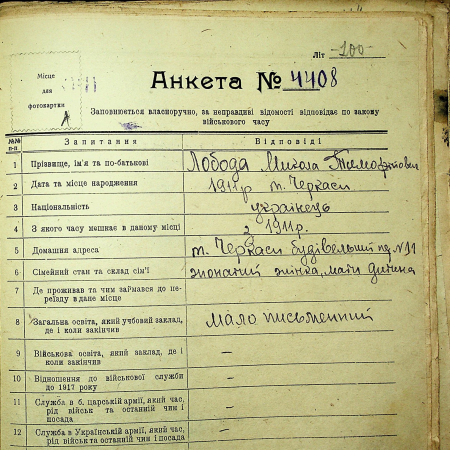 Літ -100-
Місце
для
фотокартки
А
Анкета № 4408
Заповнюється власноручно, за неправдиві відомості відповідає по закону
військового часу
№№
п-п
Запитання
Відповіді
1 Прізвище, ім'я та по-батькові Лобода Микола Тимофійович
2 Дата та місце народження 1911р м. Черкаси
3 Національність українець
4 З якого часу мешкає в даному місці з 1911р.
5 Домашня адреса м. Черкаси будівельний № 11
6 Сімейний стан та склад сім'ї жонатий жінка, мати дитина
7 Де проживав та чим займався до пе-
реїзду в дане місце
8 Загальна освіта, який учбовий заклад,
де і коли закінчив
мало письменний
9 Військова освіта, який заклад, де і
коли закінчив
–
10 Відношення до військової служби
до 1917 року
–
11 Служба в б. царській армії, який час,
рід військ та останній чин і
посада
–
12 Служба в Українській армії, який час,
рід військ та останній чин і посада
–